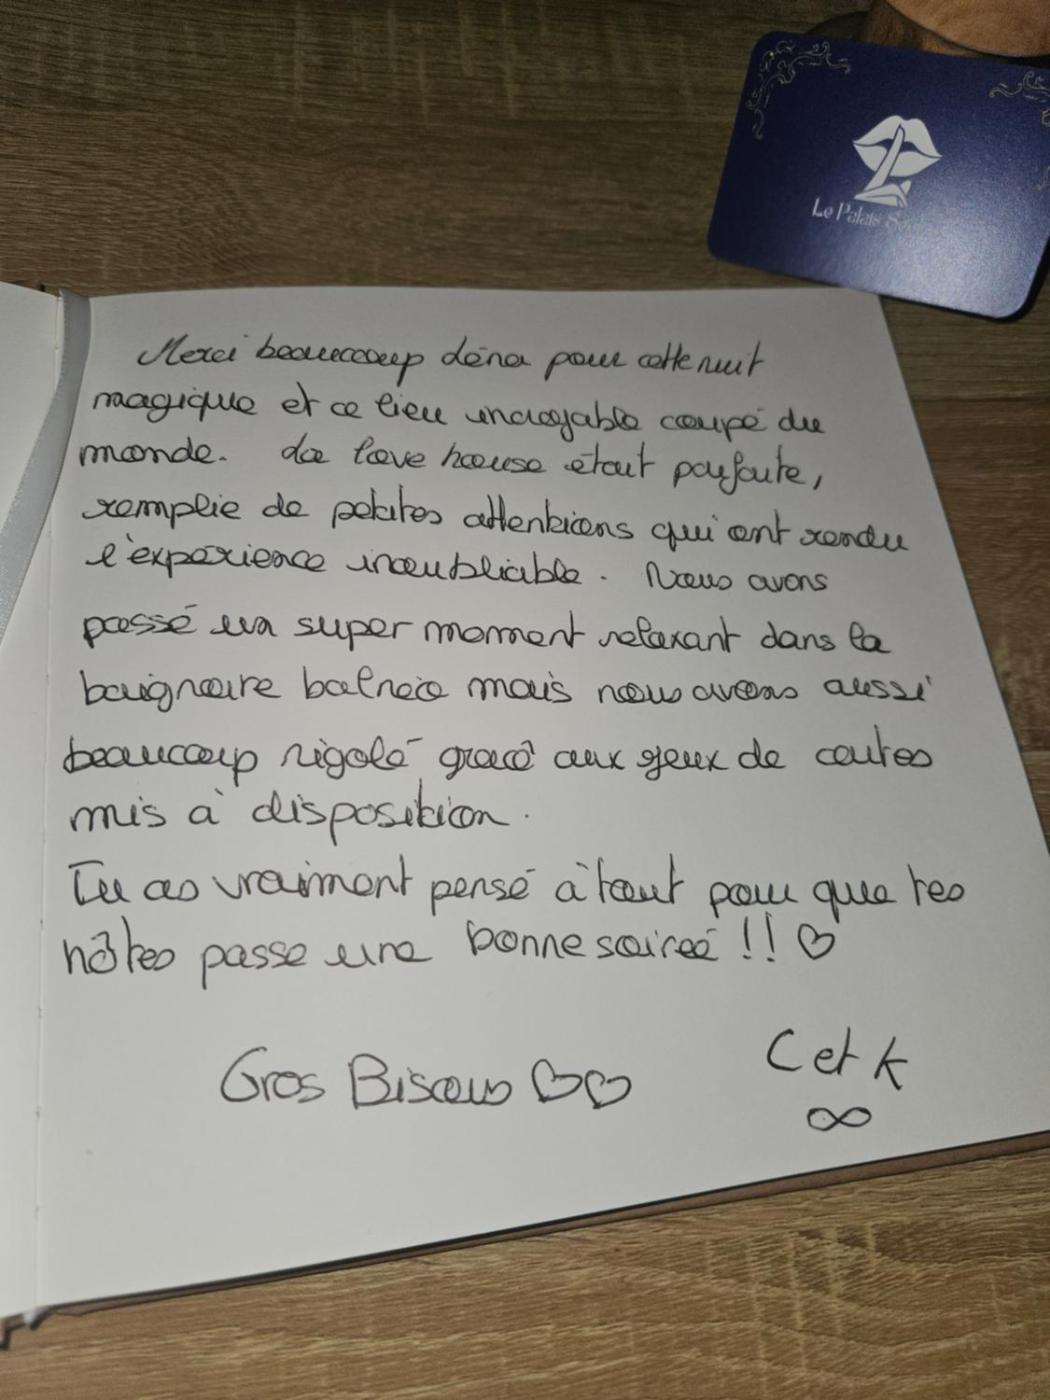 Le Palais
Merci beaucoup Léna pour cette nuit
magique et ce lieu incroyable coupé du
monde. La love house était parfaite,
remplie de petites attentions qui ont rendu
l'expérience inoubliable. Nous avons
passé un super moment relaxant dans la
baignoire balnéo mais nous avons aussi
beaucoup rigolé gracê aux jeux de cartes
mis à disposition.
Tu as vraiment pensé à tout pour que tes
hôtes passe une bonne soireé !! ♡
Gros Bisous ♡♡
C et K
∞